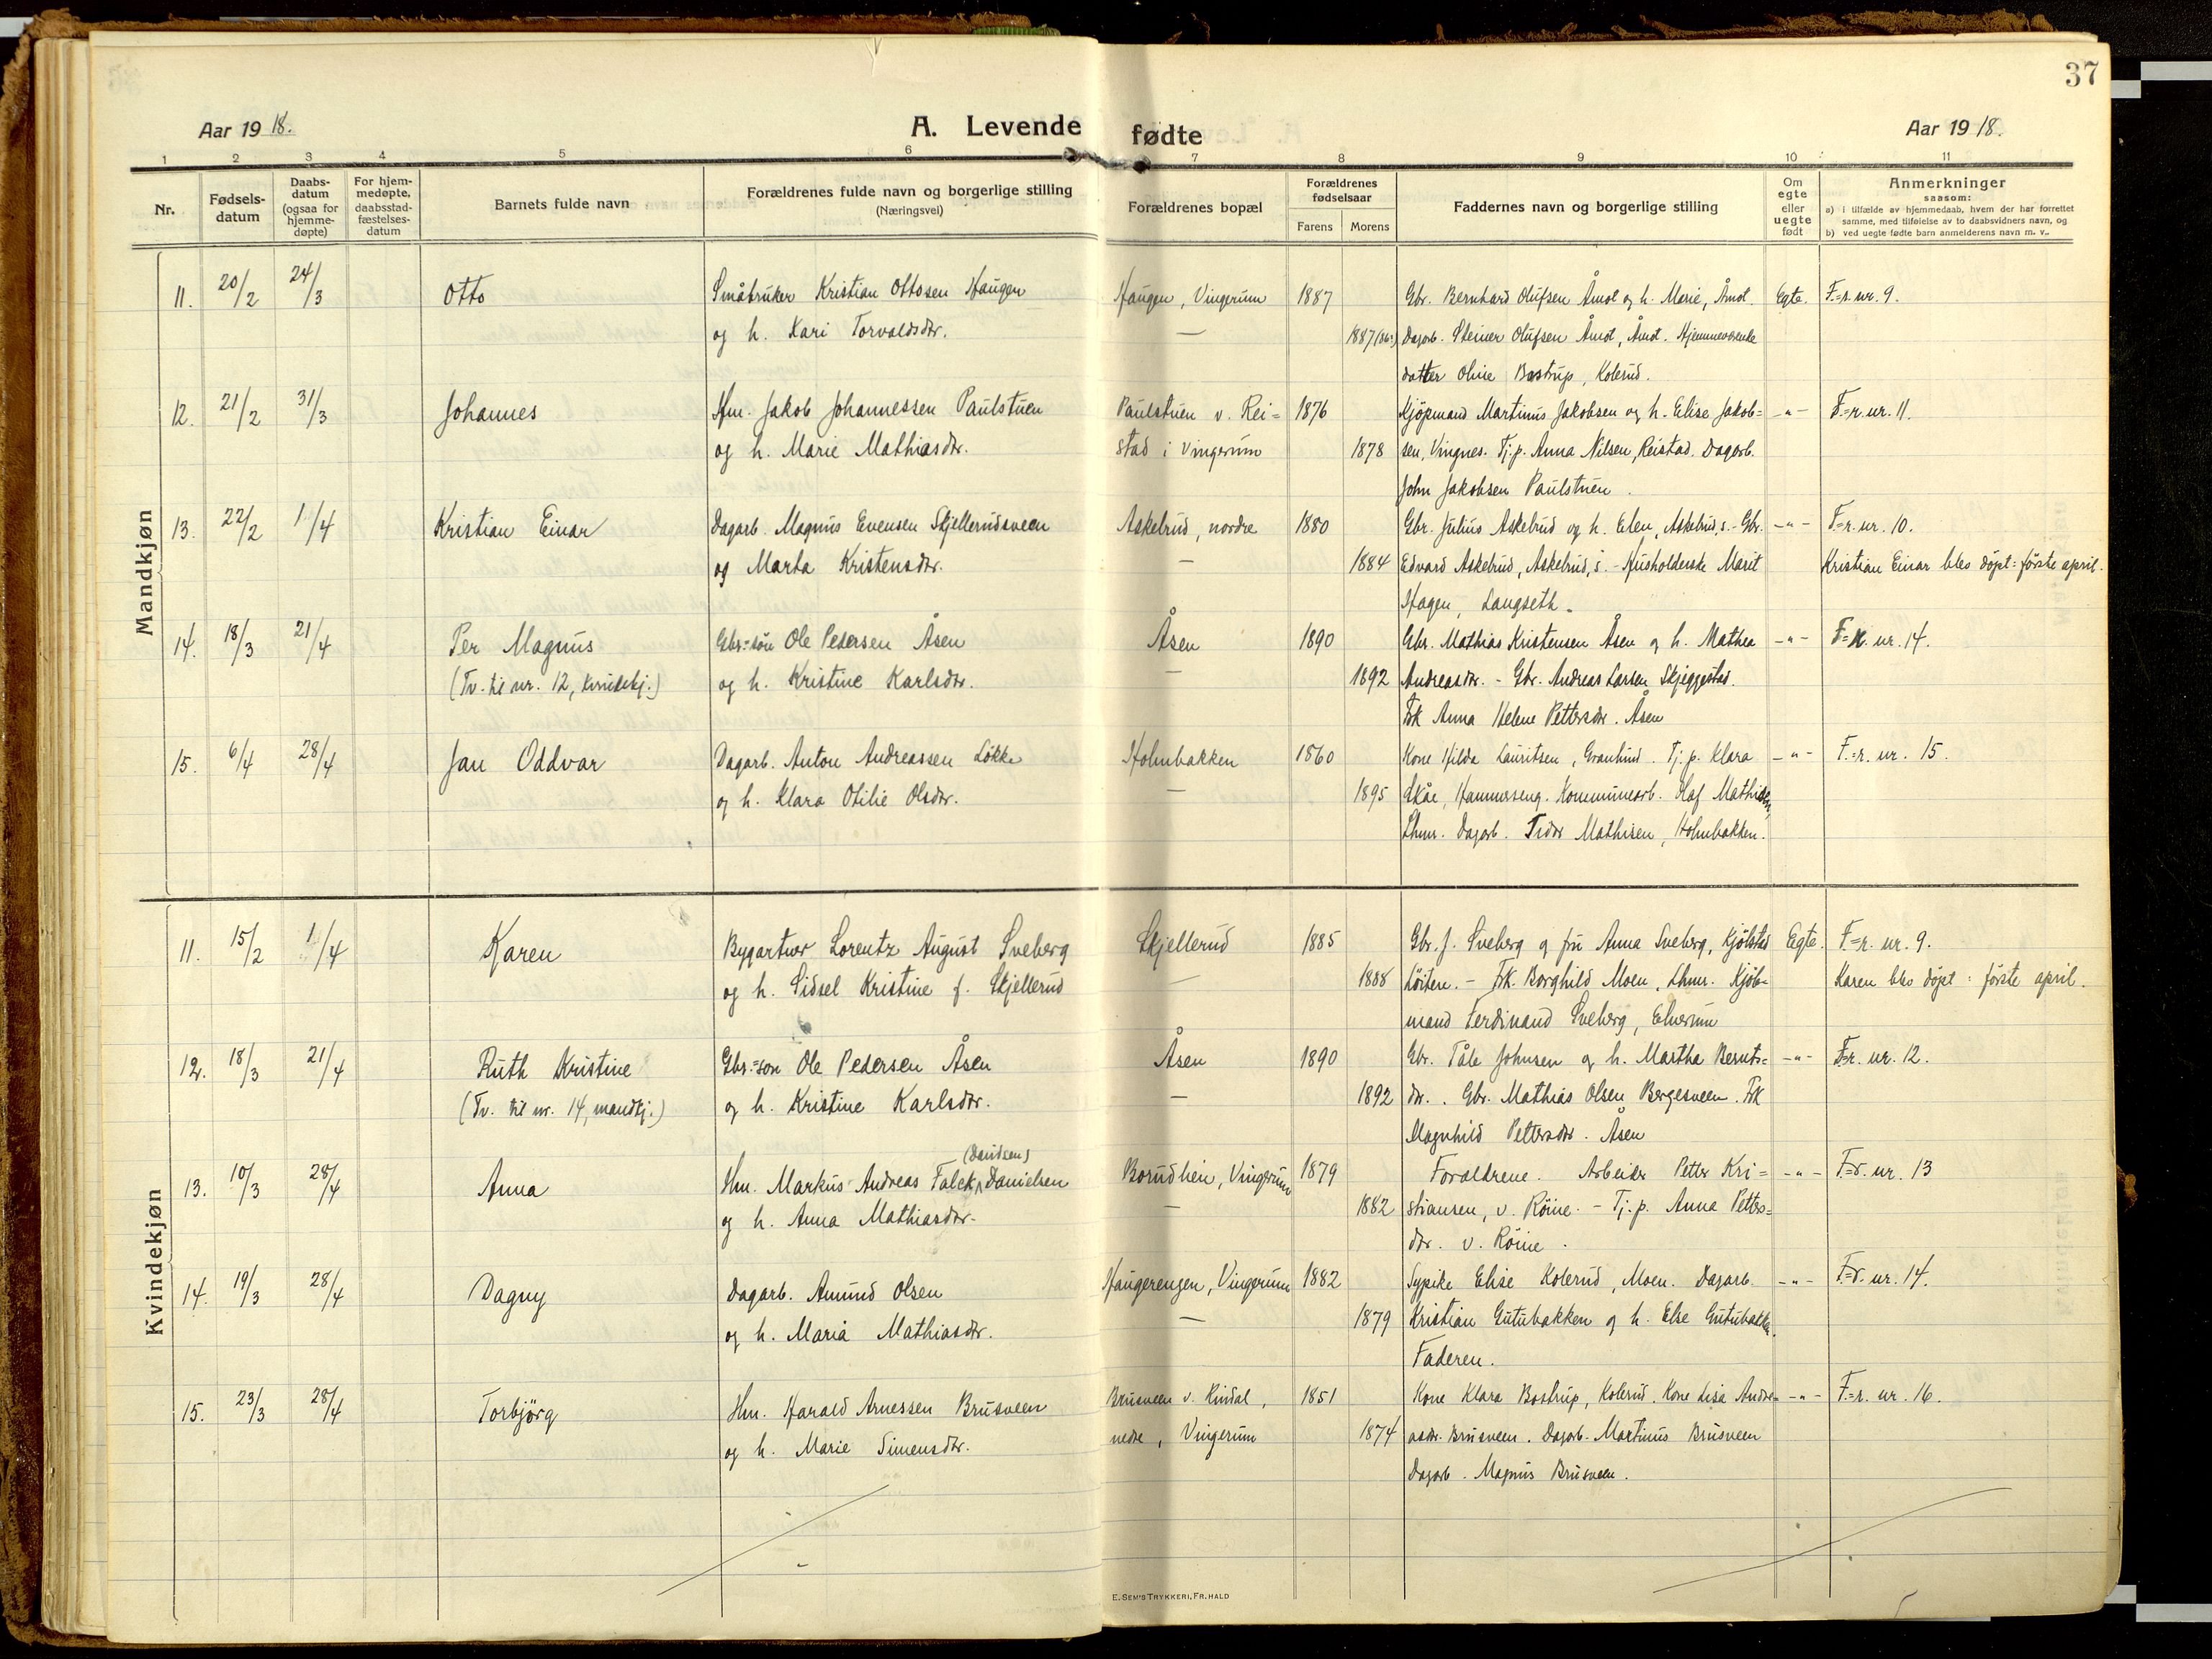 37
Aar 1918.
A. Levende fødte
Aar 1918.
1 2 3 4 5 6 7 8 9 10 11
Nr.
Fødsels-
datum
Daabs-
datum
(ogsaa for
hjemme-
døpte)
For hjem-
medøpte,
daabsstad-
fæstelses-
datum
Barnets fulde navn
Forældrenes fulde navn og borgerlige stilling
(Næringsvei)
Forældrenes bopæl
Forældrenes
fødselsaar
Farens Morens
Faddernes navn og borgerlige stilling
Om
egte
eller
uegte
født
Anmerkninger
saasom:
a) i tilfælde av hjemmedaab, hvem der har forrettet
samme, med tilføielse av to daabsvidners navn, og
b) ved uegte fødte barn anmelderens navn m. v.
Mandkjøn
11. 20/2 24/3 Otto Småbruker Kristian Ottosen Haugen Haugen, Vingerum 1887 Gbr. Bernhard Olufsen Åmot og h. Marie, Åmot. Egte. F.=r. nr. 9.
og h. Kari Torvaldsdtr. — 1887 Dagarb. Steiner Olufsen Åmot, Åmot. Hjemmeværende
datter Oline Bostrup, Kolerud.
12. 21/2 31/3 Johannes Hm. Jakob Johannessen Paulstuen Paulstuen v. Rei= 1876 Kjöpmand Martinus Jakobsen og h. Elise Jakob= -"- F.=r. nr. 11.
og h. Marie Mathiasdtr. stad i Vingerum 1878 sen, Vingnes. Tj.p. Anna Nilsen, Reistad. Dagarb.
John Jakobsen Paulstuen.
13. 22/2 1/4 Kristian Einar Dagarb. Magnus Evensen Skjellerudsveen Askelrud, nordre 1880 Gbr. Julius Askelrud og h. Elen, Askelrud, s. - Gbr. -"- F=r. nr. 10.
og Marta Kristensdtr. — 1884 Edvard Askelrud, Askelrud, s. - Husholderske Marit Kristian Einar blev döpt: förste april.
Hagen, Langseth.
14. 18/3 21/4 Per Magnus Gbr.=sön Ole Pedersen Åsen Åsen 1890 Gbr. Mathias Kristensen Åsen og h. Mathea -"- F=r. nr. 14.
(Tv. til nr. 12, kvindekj.) og h. Kristine Karlsdtr. — 1892 Andreasdtr. - Gbr. Andreas Larsen Skjeggestad.
Frk Anna Helene Pettersdtr. Åsen
15. 6/4 28/4 Jan Oddvar Dagarb. Anton Andreassen Lökke Holmbakken 1860 Kone Hilda Lauritsen, Granlund. Tj. p. Klara -"- F.=r. nr. 15.
og h. Klara Otilie Olsdtr. — 1895 Skåe, Hammerseng. Kommunearb. Olaf Mathisen,
Lhmr. Dagarb. Tidor Mathisen, Holmbakken.
Kvindekjøn
11. 15/2 1/4 Karen Bygartner Lorentz August Sveberg Skjellerud 1885 Gbr. J. Sveberg og fru Anna Sveberg, Kjölstad Egte. F.=r. nr. 9.
og h. Sidsel Kristine f. Skjellerud — 1888 Löiten. - Frk. Borghild Moen, Lhmr. Kjöb= Karen blev döpt: förste april.
mand Ferdinand Sveberg, Elverum
12. 18/3 21/4 Ruth Kristine Gbr.=son Ole Pedersen Åsen Åsen 1890 Gbr. Påle Johnsen og h. Martha Bernts= -"- F=r. nr. 12.
(Tv. til nr. 14, mandkj.) og h. Kristine Karlsdtr. — 1892 dtr. . Gbr. Mathias Olsen Bergesveen. Frk
Magnhild Pettersdtr. Åsen
13. 10/3 28/4 Anna Hm. Markus Andreas Falck (Davidsen) Danielsen Borudhein, Vingerum 1879 Forældrene. Arbeider Petter Kri= -"- F=r. nr. 13
og h. Anna Mathiasdtr. — 1882 stiansen, v. Röine. - Tj. p. Anna Petters=
dtr. v. Röine.
14. 19/3 28/4 Dagny Dagarb. Amund Olsen Haugerengen, Vingerum 1882 Sypike Elise Kolerud, Moen. Dagarb. -"- F.=r. nr. 14.
og h. Maria Mathiasdtr. — 1879 Kristian Gutubakken og h. Else Gutubakken.
Faderen.
15. 23/3 28/4 Torbjörg Hm. Harald Arnessen Brusveen Brusveen v. Rindal, 1851 Kone Klara Bostrup, Kolerud. Kone Lisa Andre= -"- F.=r. nr. 16.
og h. Marie Simensdtr. nedre, Vingerum 1874 asdtr. Brusveen. Dagarb. Martinus Brusveen
Dagarb. Magnus Brusveen.
E. SEM'S TRYKKERI, FR.HALD